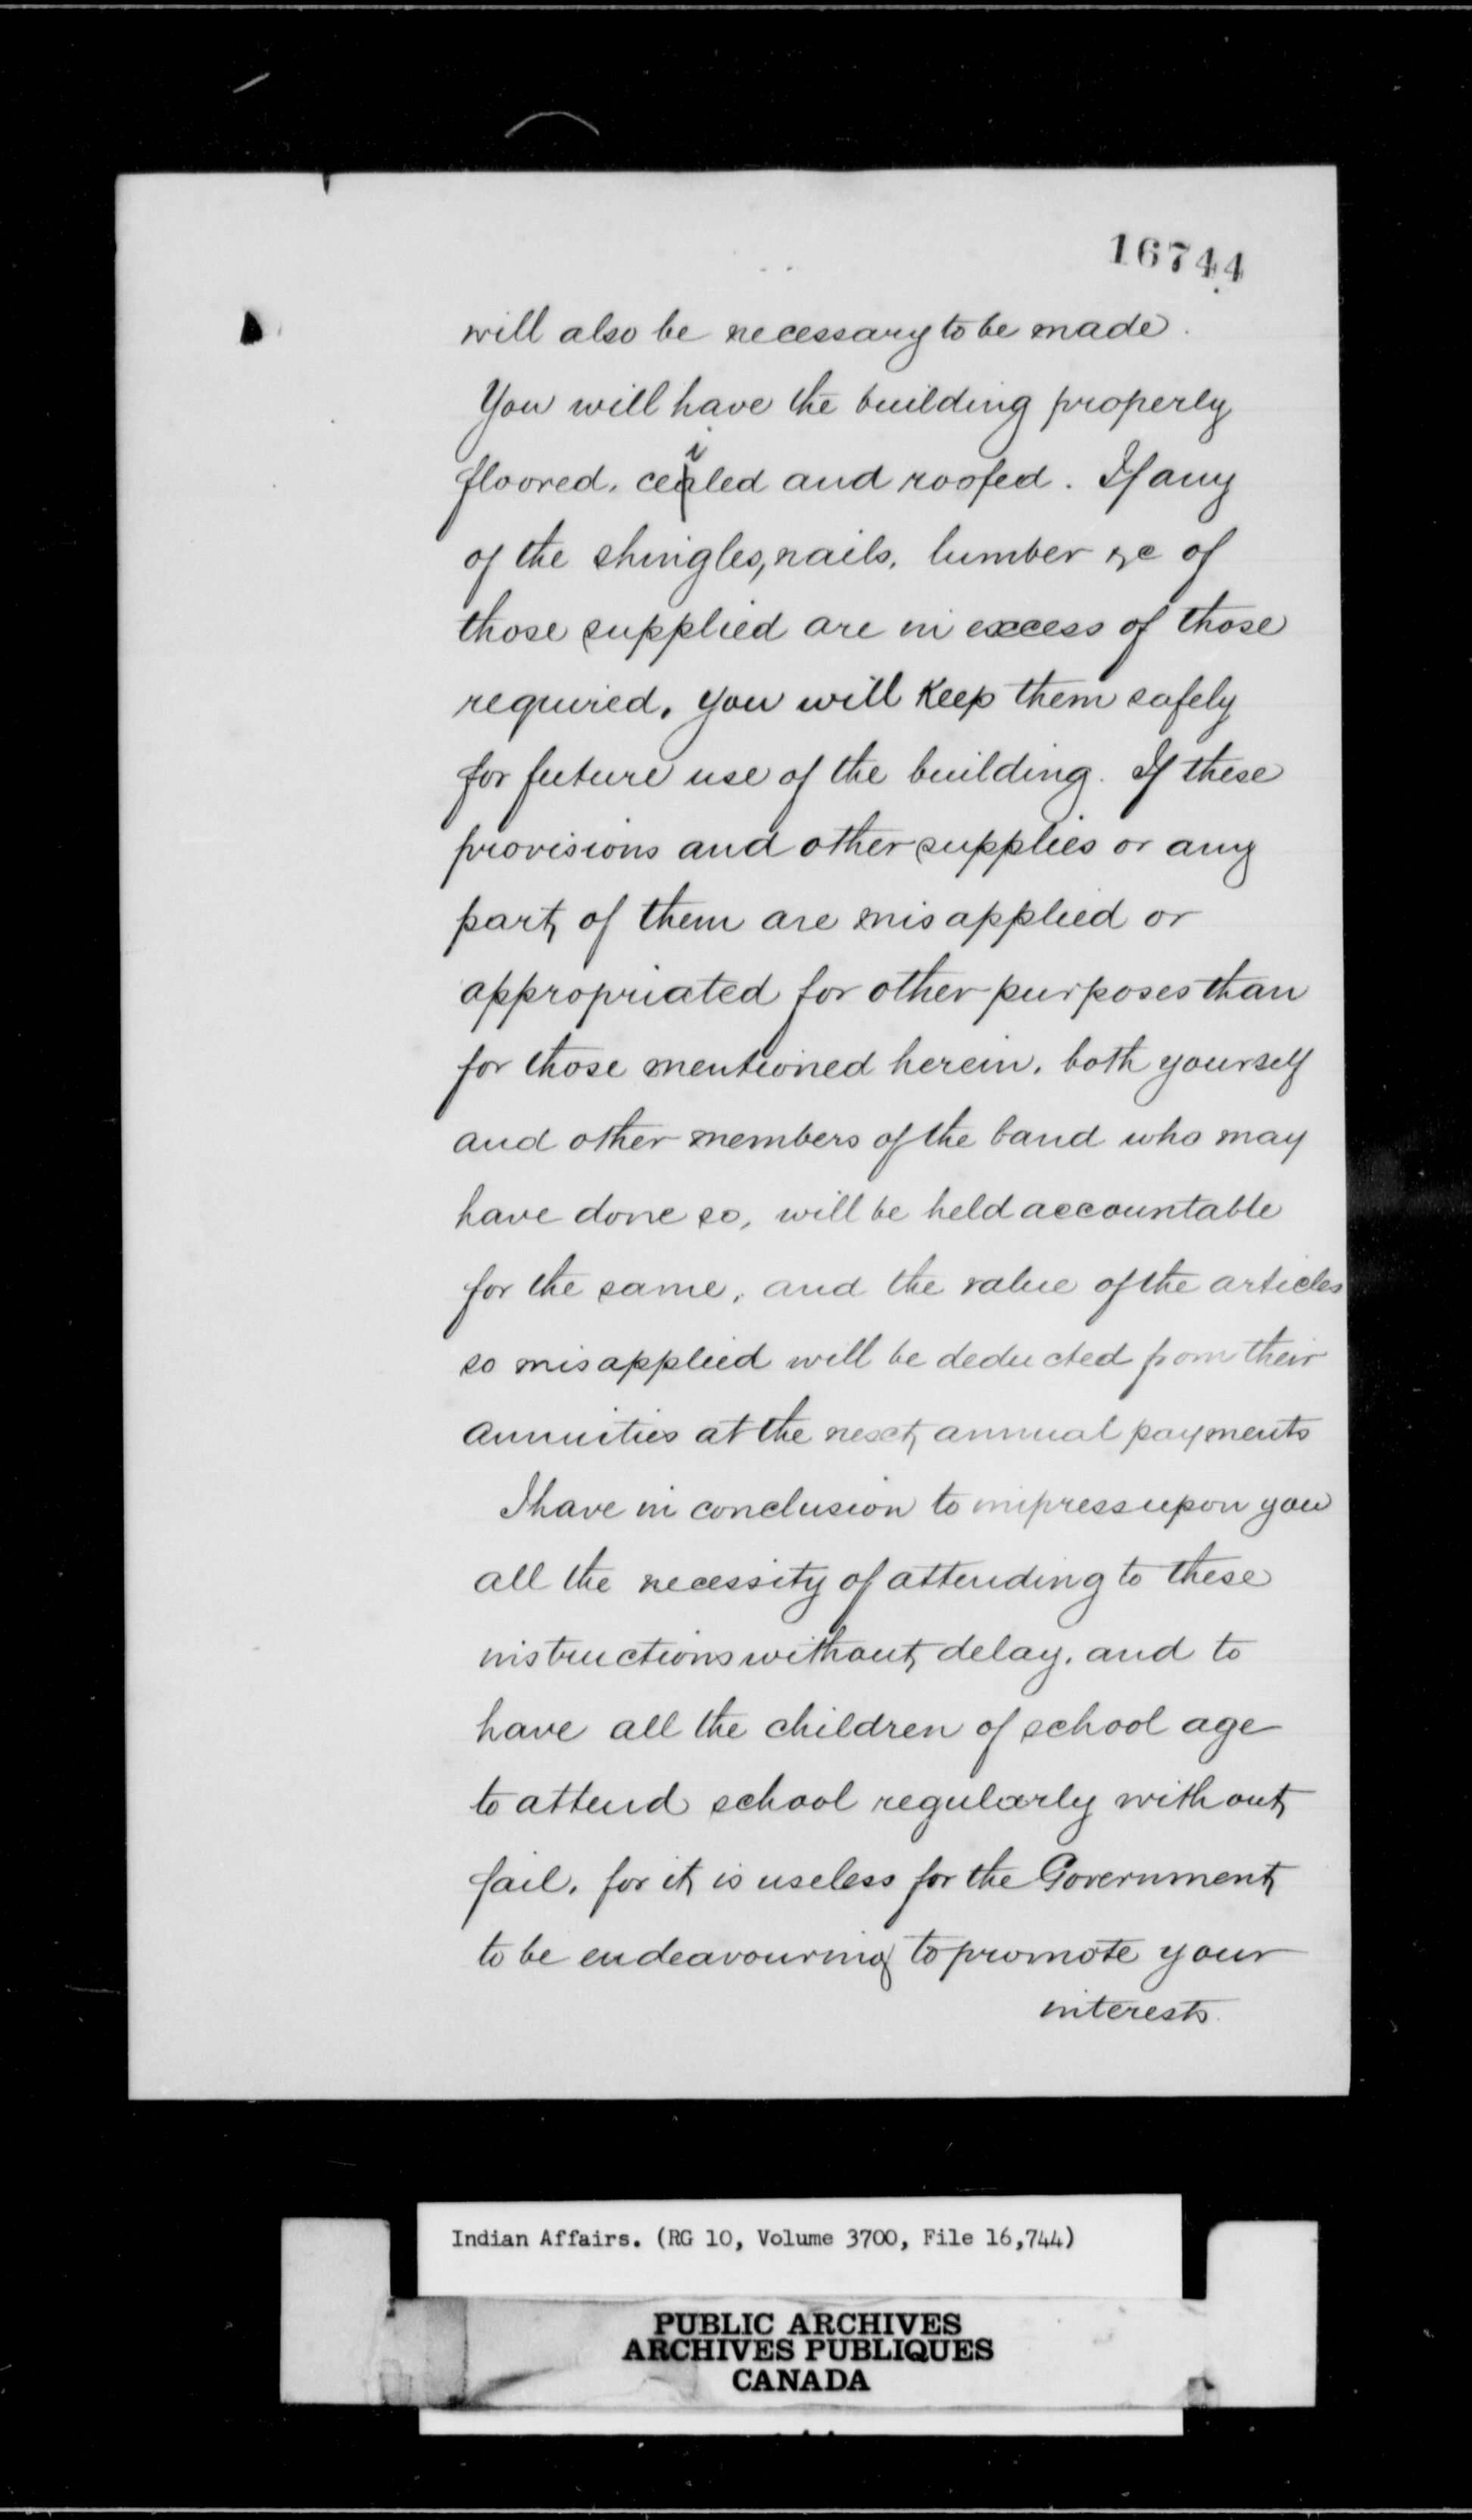 16744
will also be necessary to be made.
You will have the building properly
floored, ceiled and roofed. If any
of the shingles, nails, lumber &c of
those supplied are in excess of those
required, you will Keep them safely
for future use of the building. If these
provisions and other supplies or any
part of them are misapplied or
appropriated for other purposes than
for those mentioned herein, both yourself
and other members of the band who may
have done so, will be held accountable
for the same, and the value of the articles
so misapplied will be deducted from their
annuities at the next annual payments
I have in conclusion to impress upon you
all the necessity of attending to these
instructions without delay, and to
have all the children of school age
to attend school regularly without
fail, for it is useless for the Government
to be endeavouring to promote your
interests.
Indian Affairs. (RG 10, Volume 3700, File 16,744)
PUBLIC ARCHIVES
ARCHIVES PUBLIQUES
CANADA